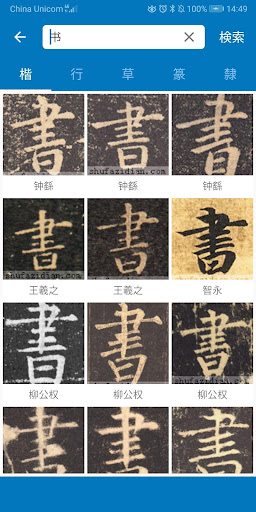 China Unicom 14:49
书 検索
楷 行 草 篆 隸
書 書 書
shufazidian.com
钟繇 钟繇 钟繇
書 書 書
王羲之 王羲之 智永
書 書 書
柳公权 柳公权 柳公权
書 書 書